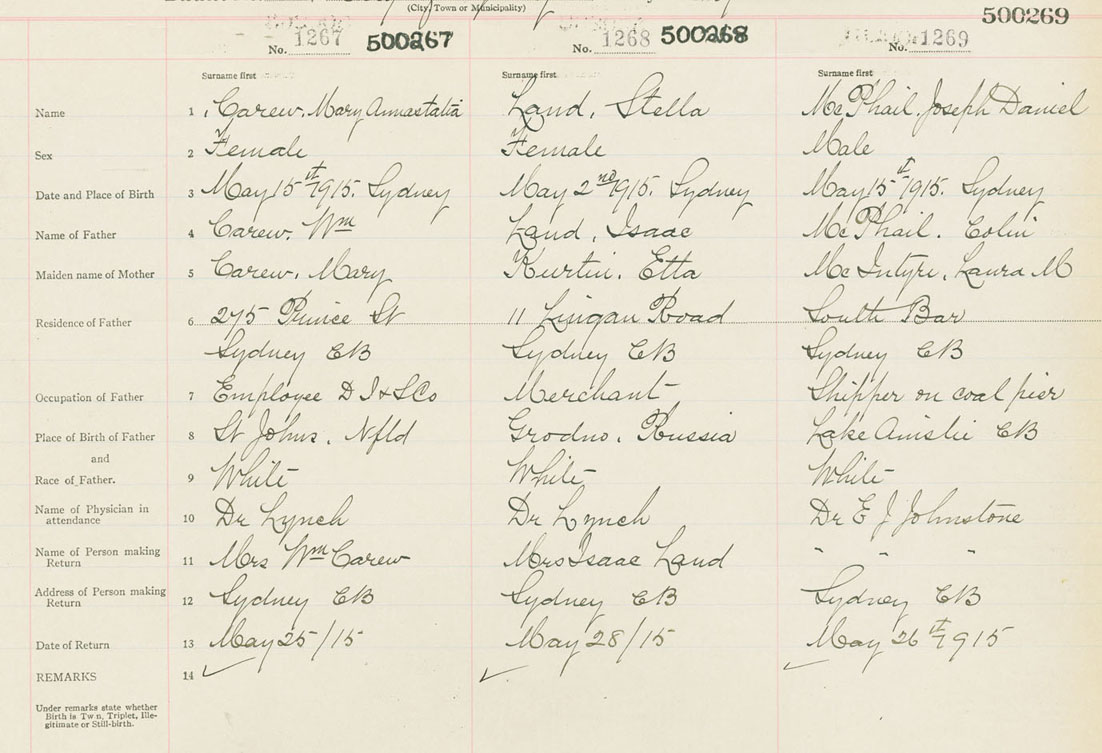 (City, Town or Municipality)
500269
No. 1267 500267 No. 1268 500268 No. 1269
Surname first Surname first Surname first
Name 1 Carew, Mary Annastatia Land, Stella McPhail, Joseph Daniel
Sex 2 Female Female Male
Date and Place of Birth 3 May 15th 1915. Sydney May 2nd 1915. Sydney May 15th 1915. Sydney
Name of Father 4 Carew, Wm Land, Isaac McPhail. Colin
Maiden name of Mother 5 Carew, Mary Kurtin, Etta McIntyre, Laura M
Residence of Father 6 275 Prince St 11 Lingan Road South Bar
Sydney CB Sydney CB Sydney CB
Occupation of Father 7 Employee D I & S Co Merchant Shipper on coal pier
Place of Birth of Father 8 St Johns, Nfld Grodno, Russia Lake Ainslie CB
and
Race of Father. 9 White White White
Name of Physician in attendance 10 Dr Lynch Dr Lynch Dr E J Johnstone
Name of Person making Return 11 Mrs Wm Carew Mrs Isaac Land " " "
Address of Person making Return 12 Sydney CB Sydney CB Sydney CB
Date of Return 13 May 25/15 May 28/15 May 26th 1915
REMARKS 14 ✓ ✓ ✓
Under remarks state whether
Birth is Twin, Triplet, Ille-
gitimate or Still-birth.